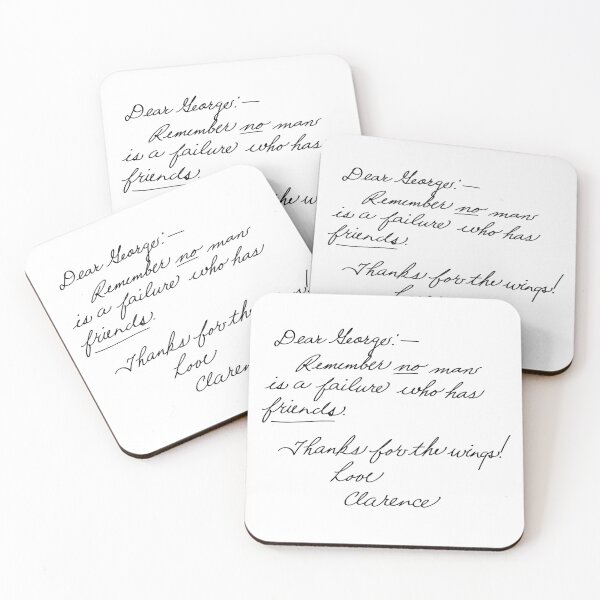 Dear George:—
Remember no man
is a failure who has
friends.
the w
Dear George:—
Remember no man
is a failure who has
friends.
Thanks for the wings!
Lo
Dear George:—
Remember no man
is a failure who has
friends.
Thanks for the
Love
Clarenc
Dear George:—
Remember no man
is a failure who has
friends.
Thanks for the wings!
Love
Clarence